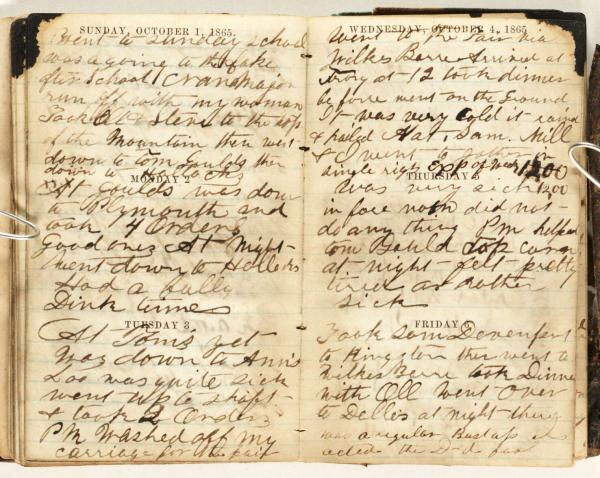 SUNDAY, OCTOBER 1, 1865.
Went to Sunday school
was a going to the Lake
after School Crandmajor
run off with my woman
Took Oll & Stens to the top
of the Mountain then went
down to tom Goulds then
down to
MONDAY 2
At Goulds was down
to Plymouth and
took 4 Orders
good ones At Night
Went down to Hellers
Had a bully
Dink times
TUESDAY 3
At Tom's yet
Was down to Ann's
Loo was quite sick
went up to shaft
& took 2 Orders
PM Washed off my
carriage for the fair
WEDNESDAY, OCTOBER 4, 1865
Went to the Fair via
Wilkes Barre Arrived at
Troy at 12 took dinner
be force went on the Ground
It was very cold it rained
& hailed Hat, Sam. Mill
& I went to
single rig Exp of week 12.00
THURSDAY 5
Was very sick 1200
in fore noon did not
do any thing PM helped
tom Gould
at night felt pretty
tired as rather
sick
FRIDAY 6
Took Sam Devenport
to Kingston then went to
Wilkes Barre took Dinner
with Oll Went over
to Dellis at night there
was a regular Bustup
acted the D-d fool